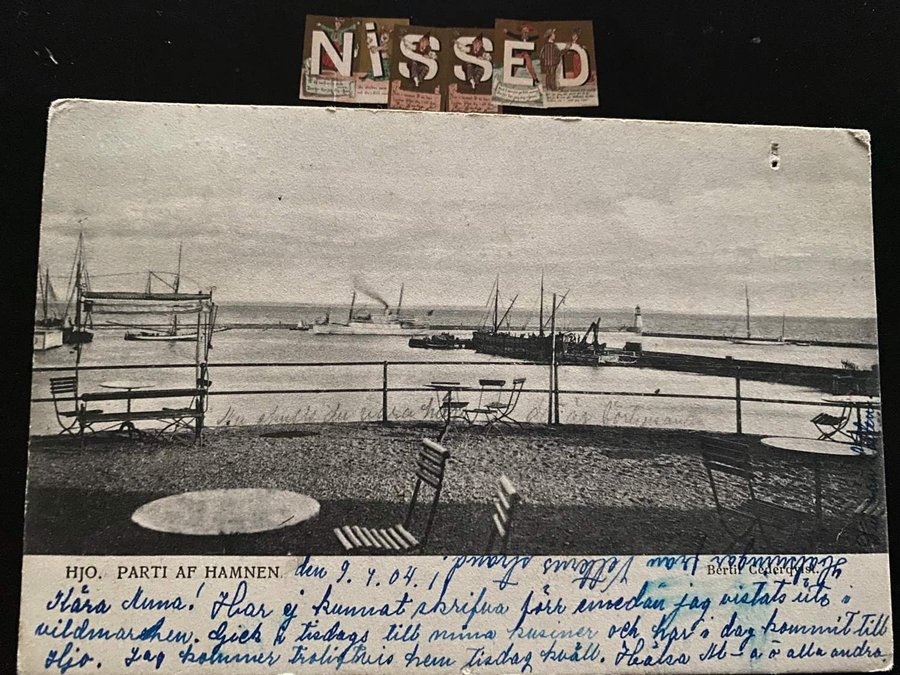 NiSSED
HJO. PARTI AF HAMNEN.
Bertil Cederqvist.
den 9.7.04.
Hälsningar från Vetterns strand!
Kära Nuna! Har ej kunnat skrifva förr emedan jag vistats ute i
vildmarken. Gick i tisdags till mina kusiner och har i dag kommit till
Hjo. Jag kommer troligtvis hem tisdag kväll. Hälsa M-a o alla andra.